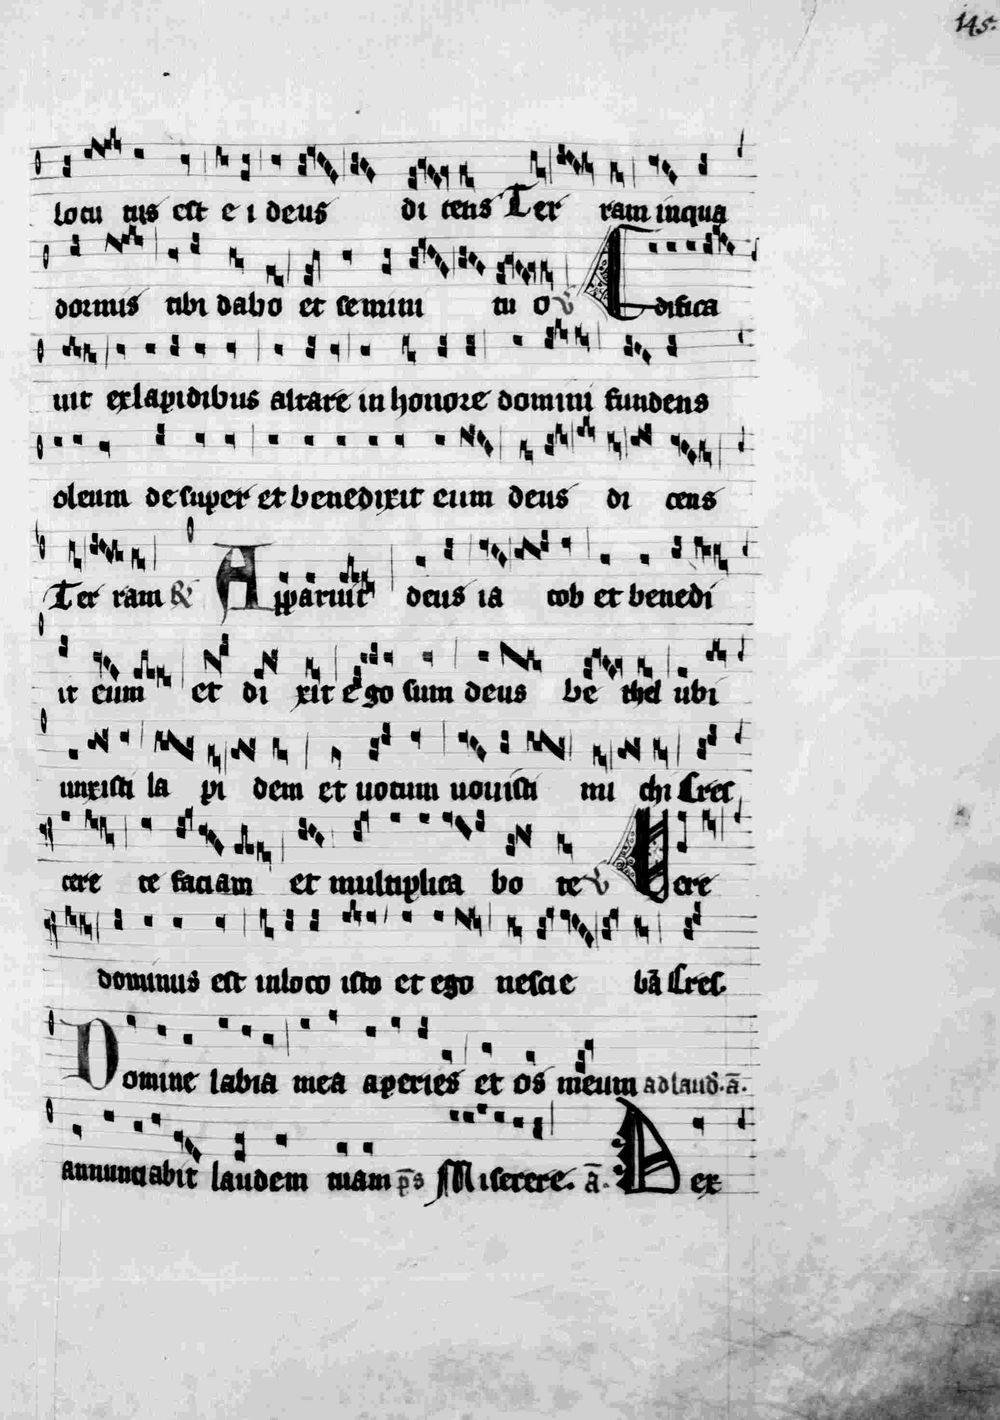 145.
locu tus est e i deus di cens Ter ram inqua
dormis tibi dabo et semini tu o ℣ Edifica
uit exlapidibus altare in honore domini fundens
oleum desuper et benedixit eum deus di cens
Ter ram & Apparuit deus ia cob et benedi
it eum et di xit ego sum deus be thel ubi
unxisti la pi dem et uotum uouisti mi chi Cres
cere te faciam et multiplica bo te ℣ Uere
dominus est inloco isto et ego nescie bā Cres.
Domine labia mea aperies et os meum ad laud. ā.
annunciabit laudem tuam p̄s Miserere. ā. Rex